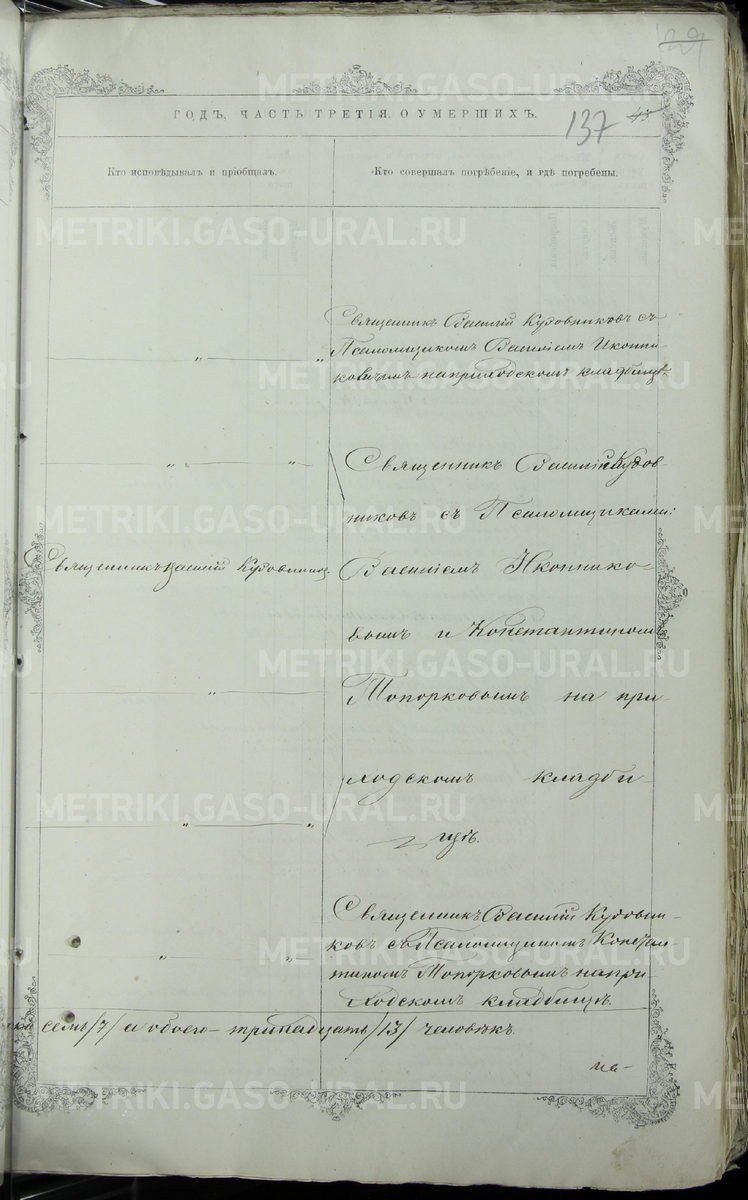 129
ГОДЪ, ЧАСТЬ ТРЕТІЯ, О УМЕРШИХЪ.
137
Кто исповѣдывалъ и пріобщалъ.
Кто совершалъ погрѣбеніе, и гдѣ погребены.
Священникъ Василій Кудовниковъ съ
Псаломщикомъ Василіемъ Иконни-
ковымъ на приходскомъ кладбищѣ
Священникъ Василій Кудов-
никовъ съ Псаломщиками:
Священникъ Василій Кудовниковъ
Василіемъ Иконнико-
вымъ и Константиномъ
Топорковымъ на при-
ходскомъ кладби-
щѣ.
Священникъ Василій Кудовни-
ковъ съ Псаломщикомъ Констан-
тиномъ Топорковымъ на при
ходскомъ кладбищѣ.
семь /7/ а обоего тринадцать /13/ человѣкъ.
на-
METRIKI.GASO-URAL.RU